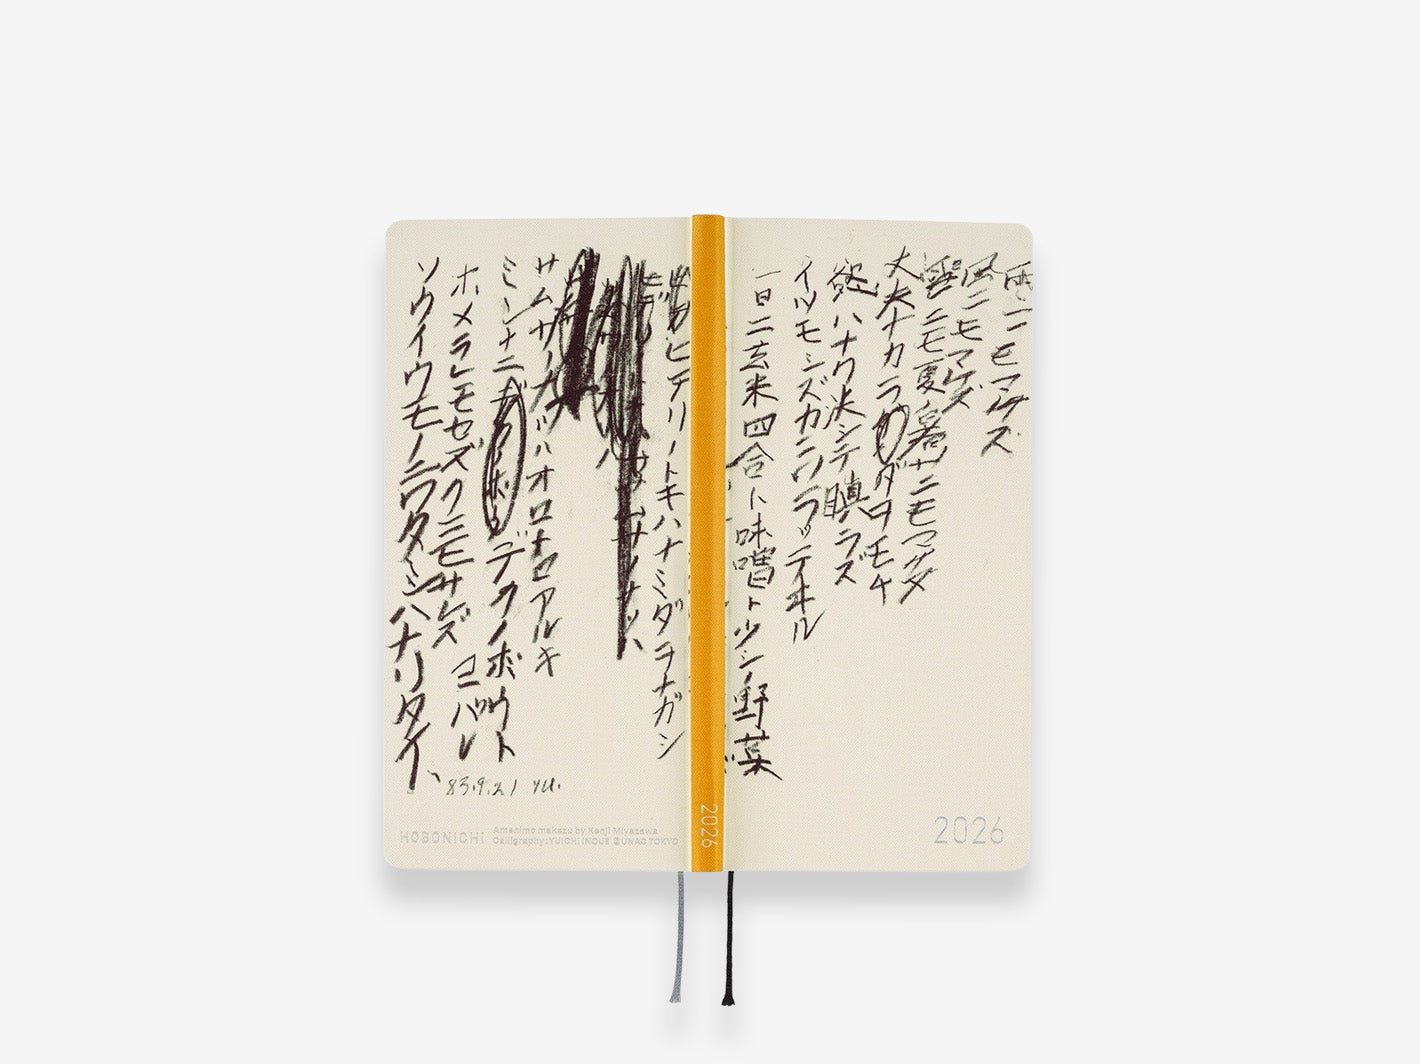 雨ニモマケズ
風ニモマケズ
雪ニモ夏ノ暑サニモマケズ
丈夫ナカラダヲモチ
慾ハナク決シテ瞋ラズ
イツモシズカニワラッテイル
一日ニ玄米四合ト味噌ト少シノ野菜
ヒデリノトキハナミダヲナガシ
サムサノナツハオロオロアルキ
ミンナニデクノボウト
ホメラレモセズクニモサレズ
ヨバレ
ソウイウモノニワタシハナリタイ
83.9.21 yu.
HOBONICHI
Amenimo makezu by Kenji Miyazawa
Calligraphy:YUICHI INOUE ©UNAC TOKYO
2026
2026